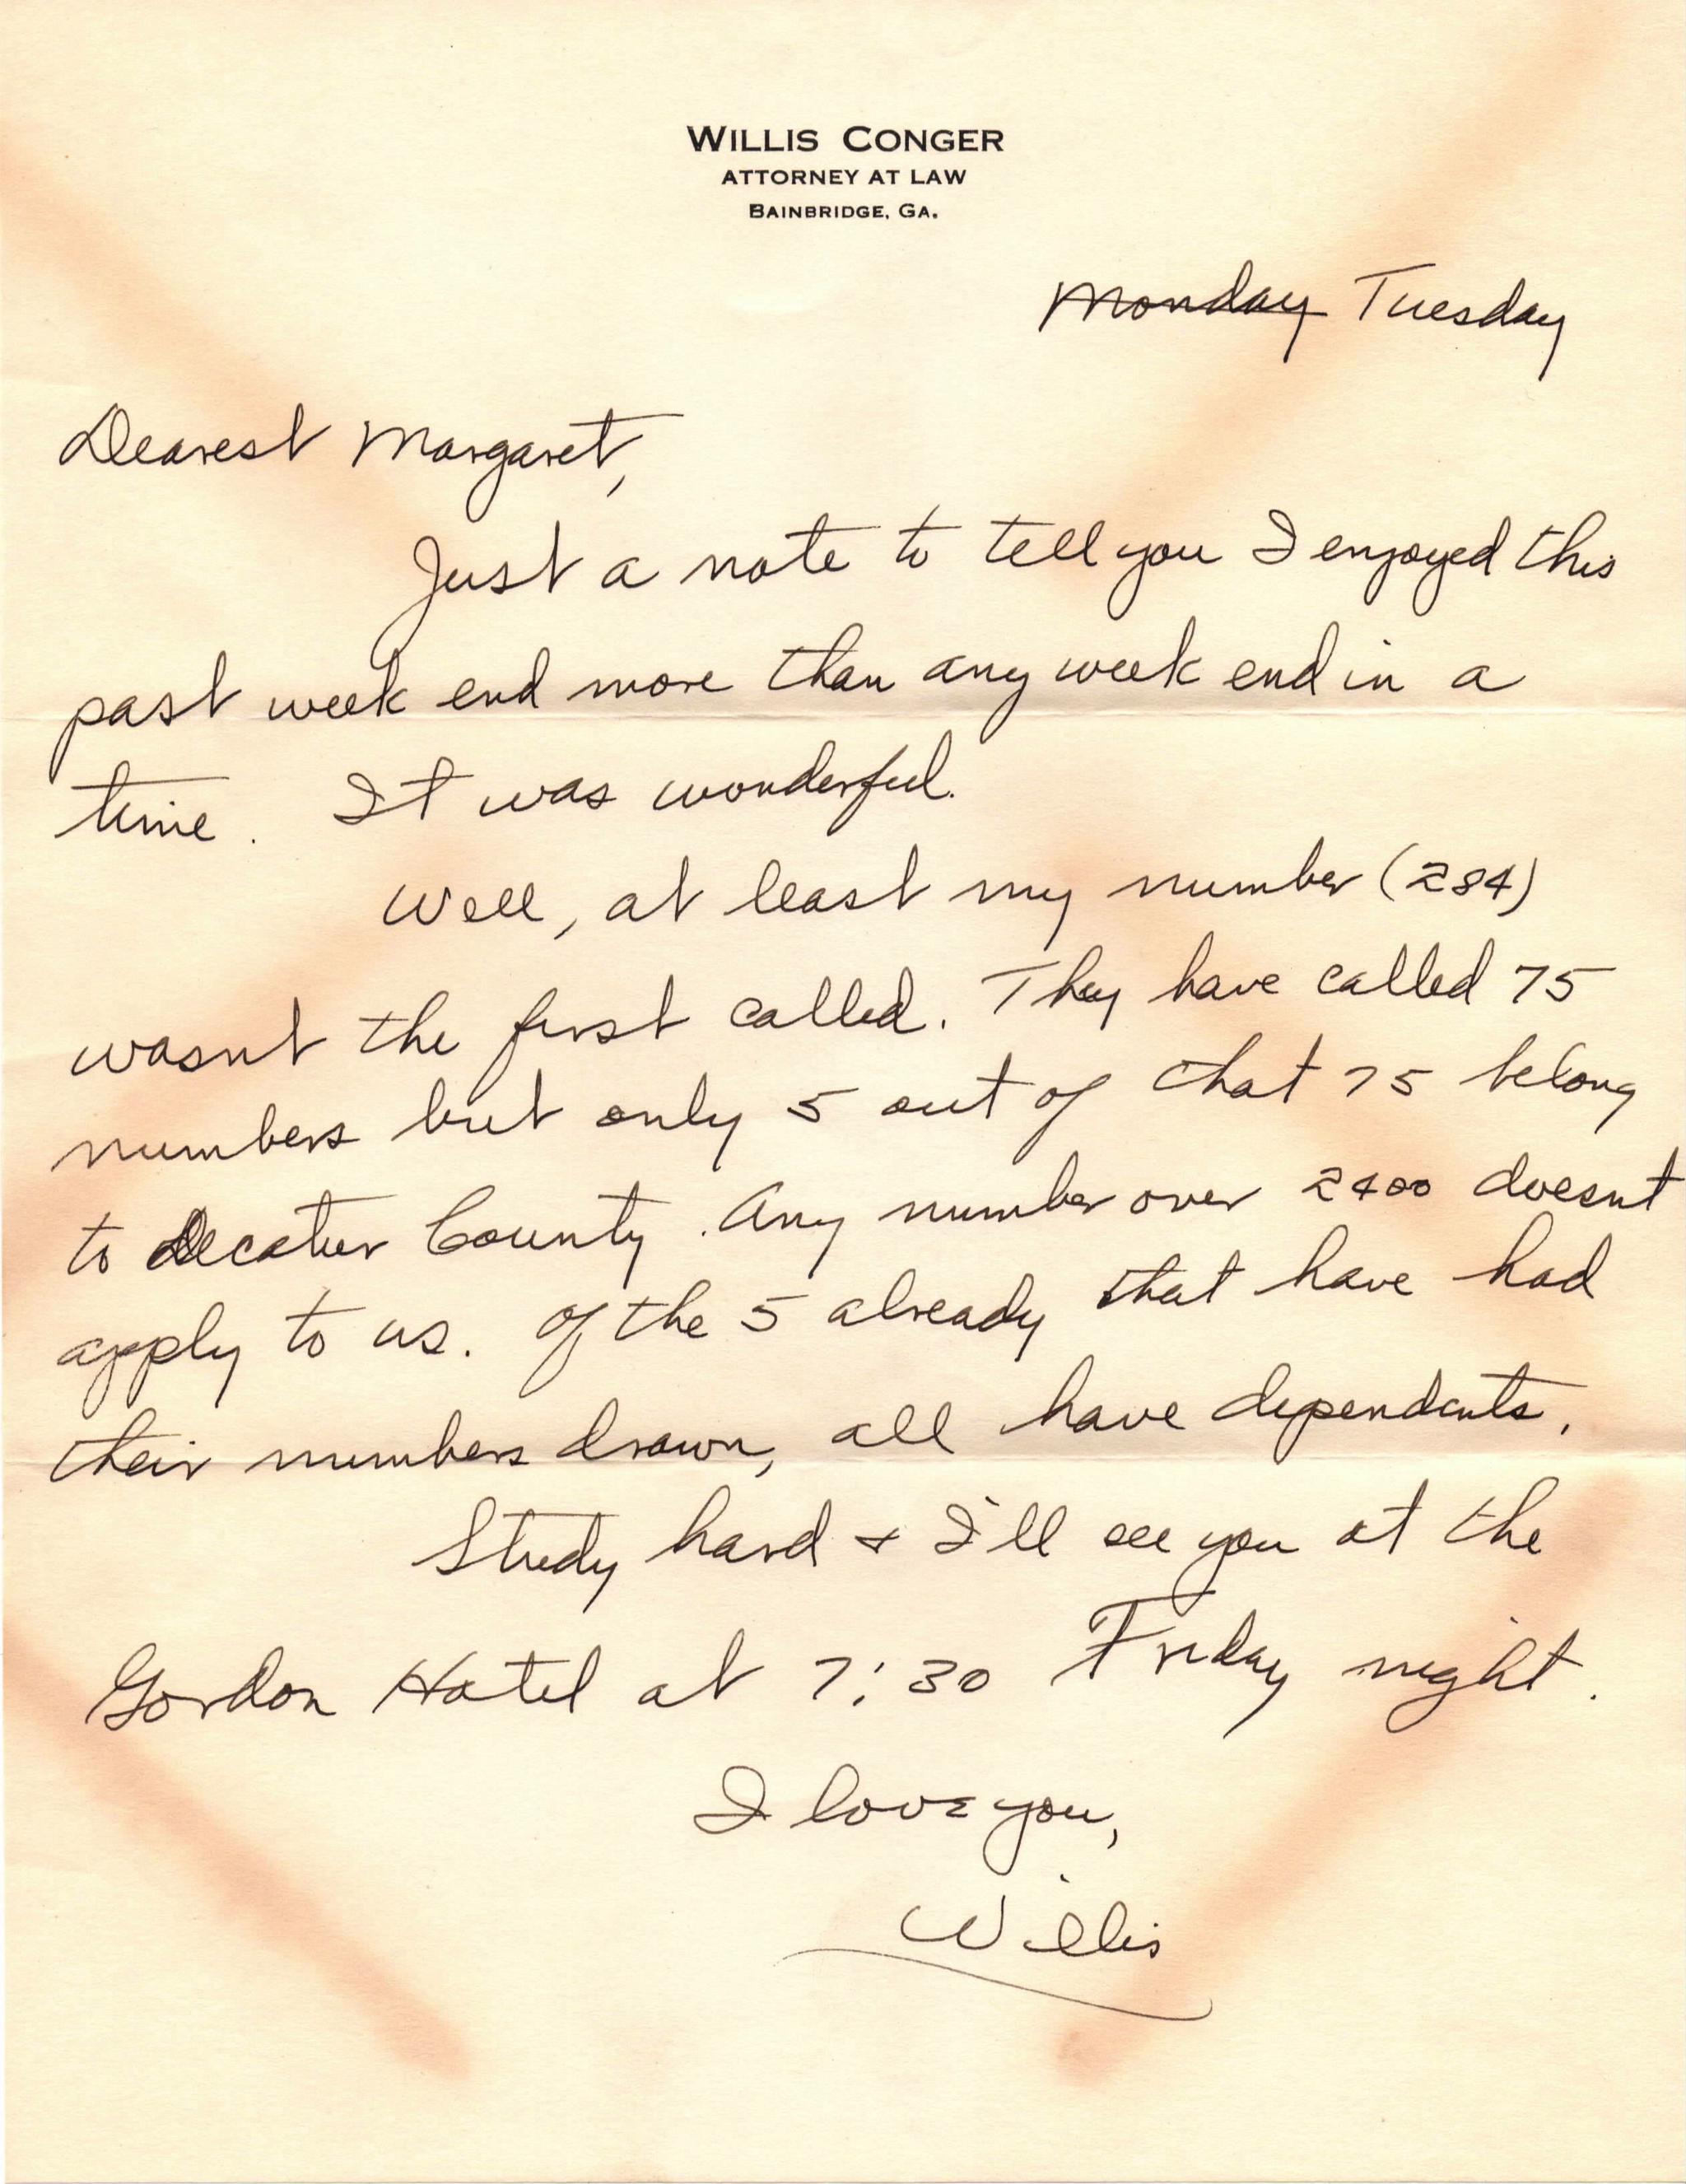 WILLIS CONGER
ATTORNEY AT LAW
BAINBRIDGE, GA.
Monday Tuesday
Dearest Margaret,
Just a note to tell you I enjoyed this
past week end more than any week end in a
time. It was wonderful.
Well, at least my number (284)
wasnt the first called. They have called 75
numbers but only 5 out of that 75 belong
to Decatur County. Any number over 2400 doesnt
apply to us. Of the 5 already that have had
their numbers drawn, all have dependents.
Study hard + I'll see you at the
Gordon Hotel at 7:30 Friday night.
I love you,
Willis